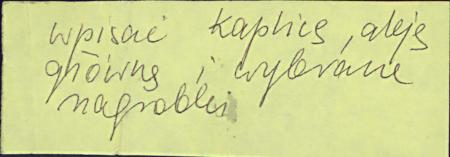 wpisać kaplicę, aleję
główną i wybrane
nagrobki